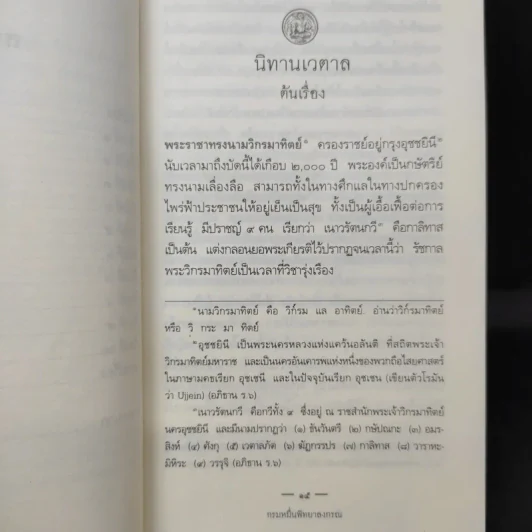 นิทานเวตาล
ต้นเรื่อง
พระราชาทรงนามวิกรมาทิตย์* ครองราชย์อยู่กรุงอุชชยินี*
นับเวลามาถึงบัดนี้ได้เกือบ ๒,๐๐๐ ปี พระองค์เป็นกษัตริย์
ทรงนามเลื่องลือ สามารถทั้งในทางศึกแลในทางปกครอง
ไพร่ฟ้าประชาชนให้อยู่เย็นเป็นสุข ทั้งเป็นผู้เอื้อเฟื้อต่อการ
เรียนรู้ มีปราชญ์ ๙ คน เรียกว่า เนาวรัตนกวี* คือกาลิทาส
เป็นต้น แต่งกลอนยอพระเกียรติไว้ปรากฏจนเวลานี้ว่า รัชกาล
พระวิกรมาทิตย์เป็นเวลาที่วิชารุ่งเรือง
*นามวิกรมาทิตย์ คือ วิกรม แล อาทิตย์. อ่านว่าวิกรมาทิตย์
หรือ วิ กระ มา ทิตย์
*อุชชยินี เป็นพระนครหลวงแห่งแคว้นอลันติ ที่สถิตพระเจ้า
วิกรมาทิตย์มหาราช และเป็นนครอันเคารพแห่งหนึ่งของพวกถือไสยศาสตร์
ในภาษามคธเรียก อุชเชนี และในปัจจุบันเรียก อุชเชน (เขียนตัวโรมัน
ว่า Ujjein) (อภิธาน ร.๖)
*เนาวรัตนกวี คือกวีทั้ง ๙ ซึ่งอยู่ ณ ราชสำนักพระเจ้าวิกรมาทิตย์
นครอุชชยินี และมีนามปรากฏว่า (๑) ธันวันตรี (๒) กษปณกะ (๓) อมร-
สิงห์ (๔) ศังกุ (๕) เวตาลภัต (๖) ฆัฏกรรปร (๗) กาลิทาส (๘) วาราหะ-
มิหิระ (๙) วรรุจี (อภิธาน ร.๖)
— ๑๕ —
กรมหมื่นพิทยาลงกรณ